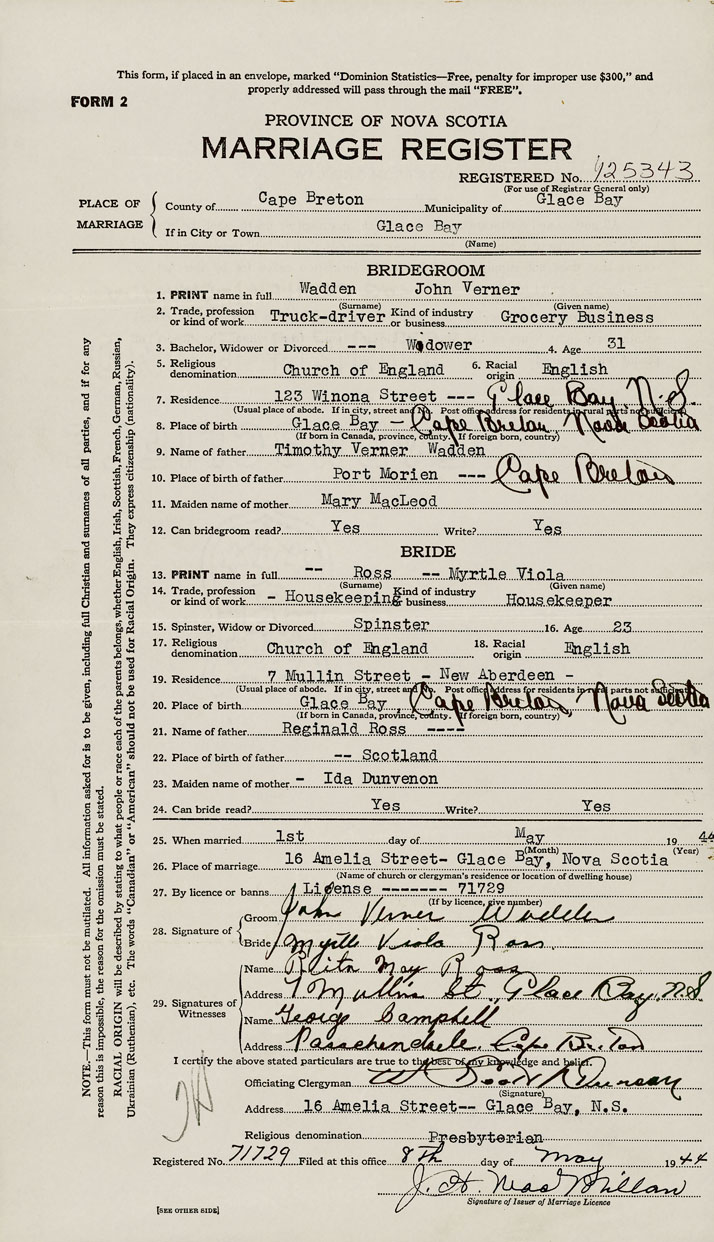 This form, if placed in an envelope, marked “Dominion Statistics—Free, penalty for improper use $300,” and
properly addressed will pass through the mail “FREE”.
FORM 2
PROVINCE OF NOVA SCOTIA
MARRIAGE REGISTER
REGISTERED No. 125343
(For use of Registrar General only)
PLACE OF MARRIAGE
County of Cape Breton Municipality of Glace Bay
If in City or Town Glace Bay
(Name)
BRIDEGROOM
1. PRINT name in full Wadden John Verner
(Surname) (Given name)
2. Trade, profession or kind of work Truck-driver Kind of industry or business Grocery Business
3. Bachelor, Widower or Divorced --- Widower 4. Age 31
5. Religious denomination Church of England 6. Racial origin English
7. Residence 123 Winona Street --- Glace Bay, N.S.
(Usual place of abode. If in city, street and No. Post office address for residents in rural parts not sufficient)
8. Place of birth Glace Bay - Cape Breton, Nova Scotia
(If born in Canada, province, county. If foreign born, country)
9. Name of father Timothy Verner Wadden
10. Place of birth of father Port Morien --- Cape Breton
11. Maiden name of mother Mary MacLeod
12. Can bridegroom read? Yes Write? Yes
BRIDE
13. PRINT name in full -- Ross -- Myrtle Viola
(Surname) (Given name)
14. Trade, profession or kind of work - Housekeeping Kind of industry or business Housekeeper
15. Spinster, Widow or Divorced Spinster 16. Age 23
17. Religious denomination Church of England 18. Racial origin English
19. Residence 7 Mullin Street - New Aberdeen -
(Usual place of abode. If in city, street and No. Post office address for residents in rural parts not sufficient)
20. Place of birth Glace Bay, Cape Breton Nova Scotia
(If born in Canada, province, county. If foreign born, country)
21. Name of father Reginald Ross ----
22. Place of birth of father -- Scotland
23. Maiden name of mother - Ida Dunvenon
24. Can bride read? Yes Write? Yes
25. When married 1st day of May 19 44
(Month) (Year)
26. Place of marriage 16 Amelia Street- Glace Bay, Nova Scotia
(Name of church or clergyman's residence or location of dwelling house)
27. By licence or banns License ------- 71729
(If by licence, give number)
28. Signature of
Groom John Verner Wadden
Bride Myrtle Viola Ross
29. Signatures of Witnesses
Name Rita May Ross
Address 7 Mullin St., Glace Bay, N.S
Name George Campbell
Address Passchendaele, Cape Breton
I certify the above stated particulars are true to the best of my knowledge and belief.
Officiating Clergyman
(Signature)
Address 16 Amelia Street-- Glace Bay, N.S.
Religious denomination Presbyterian
Registered No. 71729 Filed at this office 8th day of May 1944
J. H. MacMillan
Signature of Issuer of Marriage Licence
[SEE OTHER SIDE]
NOTE.—This form must not be mutilated. All information asked for is to be given, including full Christian and surnames of all parties, and if for any
reason this is impossible, the reason for the omission must be stated.
RACIAL ORIGIN will be described by stating to what people or race each of the parents belongs, whether English, Irish, Scottish, French, German, Russian,
Ukrainian (Ruthenian), etc. The words “Canadian” or “American” should not be used for Racial Origin. They express citizenship (nationality).